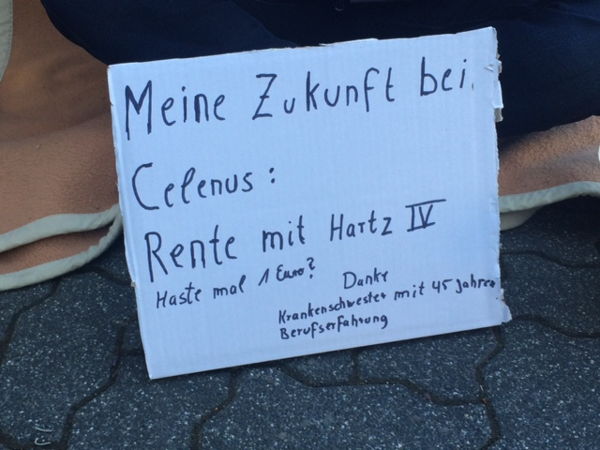 Meine Zukunft bei
Celenus:
Rente mit Hartz IV
Haste mal 1 Euro?
Danke
Krankenschwester mit 45 Jahren
Berufserfahrung